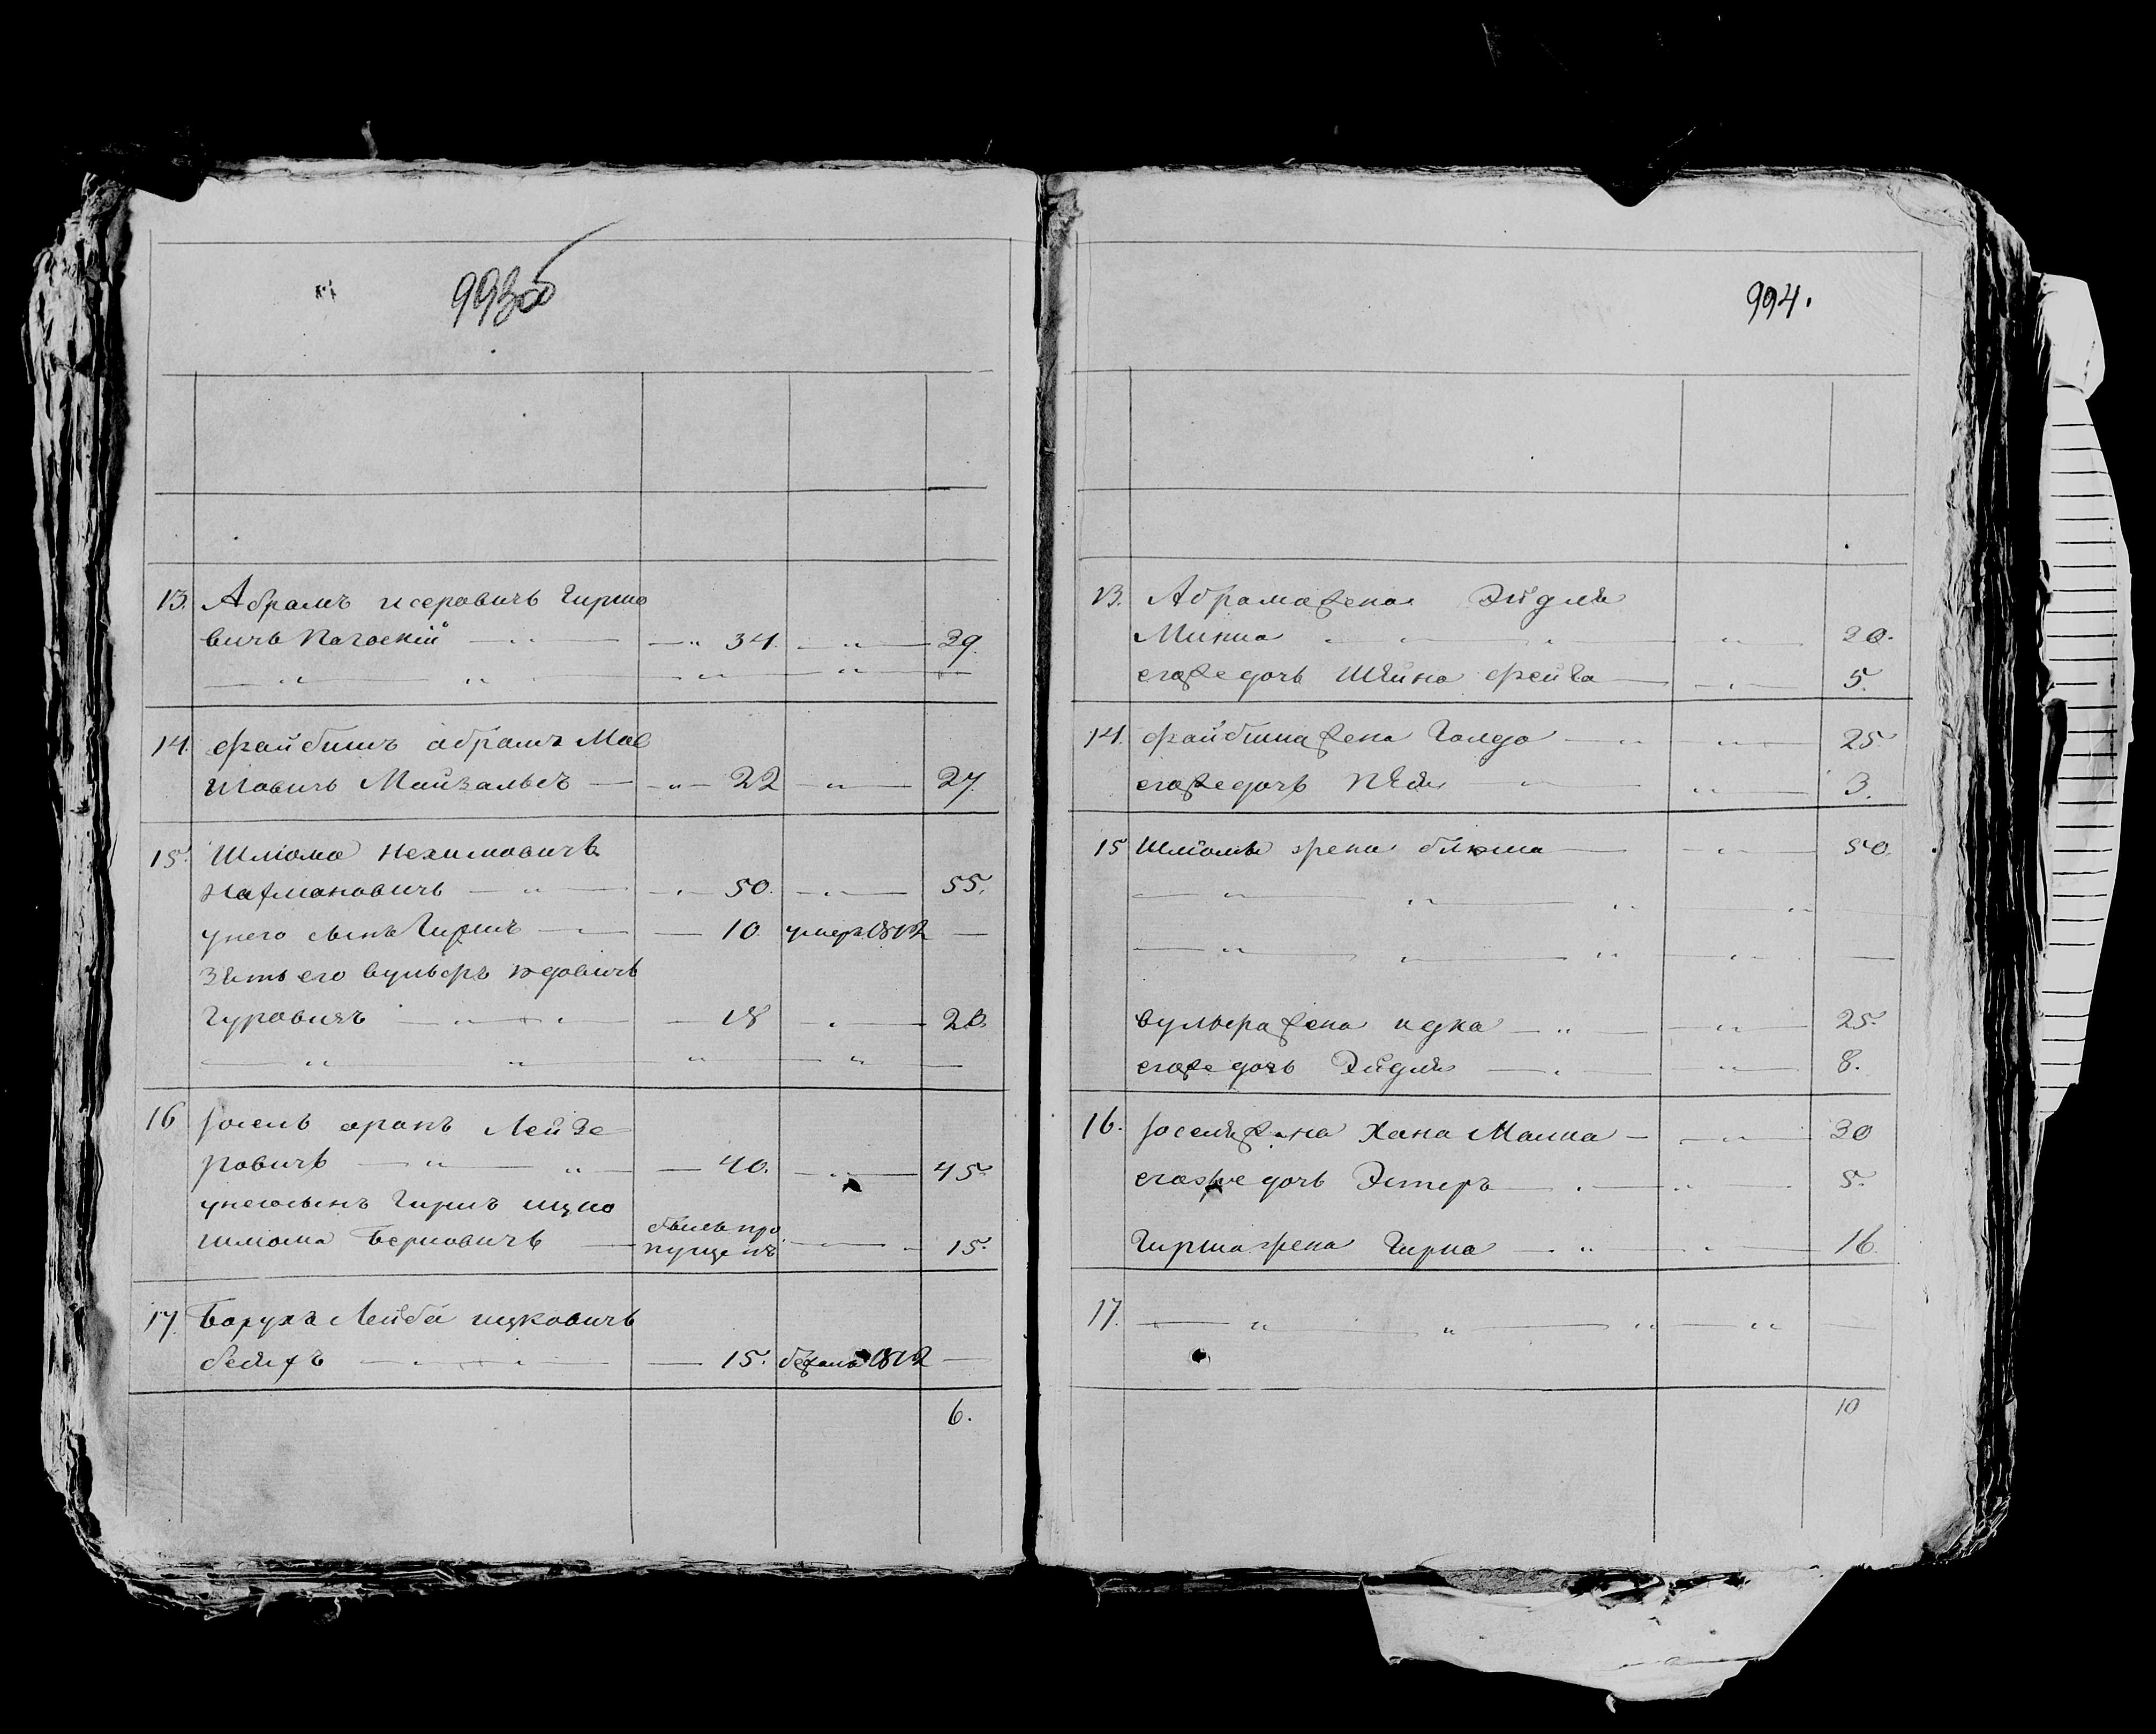 993об
13. Абрамъ исеровичъ Гиршо
вичъ Погоский 34. 39.
14. Файбишъ абрамъ Мов
шовичъ Майзальсъ 22 27.
15. Шлиома Нехимовичъ
Нахмановичъ 50. 55.
у него сынъ Гиршъ 10. умеръ 1812
Зять его вульфъ
Гуровичъ 18 20.
16 Иосель аронъ Лейзе
ровичъ 40. 45.
у него сынъ Гиршъ ицко
шлиома Берковичъ былъ про
пущенъ 15.
17. Борухъ Лейба ицковичъ
15. бежалъ 1812
6.
994.
13. Абрама жена Эйдля
Минна 20.
его же дочь Шейна фейга 5.
14. Файбиша жена Голда 25
его же дочь 3.
15 Шлиомы жена блюма 50.
вульфа жена идка 25.
его же дочь Эйдля 8.
16. Иоселя жена Хана Малка 30
его же дочь Эстеръ 5.
Гирша жена Гирка 16.
17.
10